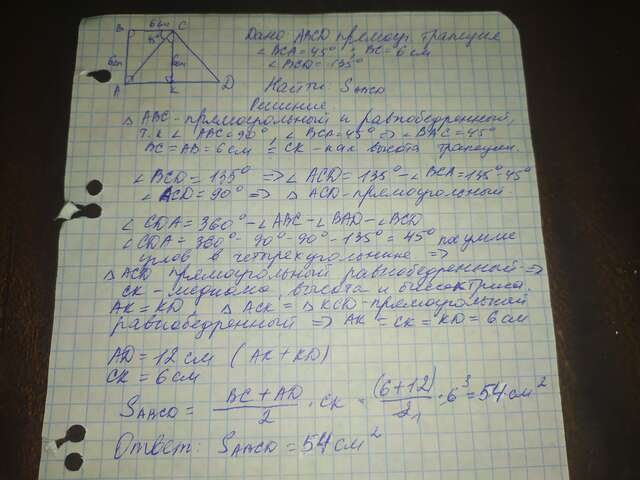 B 6см C
45°
6см 6см
A K D
Дано ABCD прямоуг. трапеция
∠BCA=45°; BC=6см
∠BCD=135°
Найти: SABCD
Решение
△ABC-прямоугольный и равнобедренный,
т.к ∠ABC=90°, ∠BCA=45° => ∠BAC=45°
BC=AB=6см = CK - как высота трапеции.
∠BCD=135° => ∠ACD=135°-∠BCA=135°-45°
∠ACD=90° => △ACD-прямоугольный.
∠CDA=360°-∠ABC-∠BAD-∠BCD
∠CDA=360°-90°-90°-135°=45° по сумме
углов в четырехугольнике =>
△ACD прямоугольный равнобедренный =>
CK - медиана, высота и биссектриса.
AK=KD, △ACK=△KCD-прямоугольный
равнобедренный => AK=CK=KD=6см
AD=12см (AK+KD)
CK=6см
SABCD = BC+AD/2 · CK = (6+12)/2 1 · 6 3 = 54 см²
Ответ: SABCD=54см²